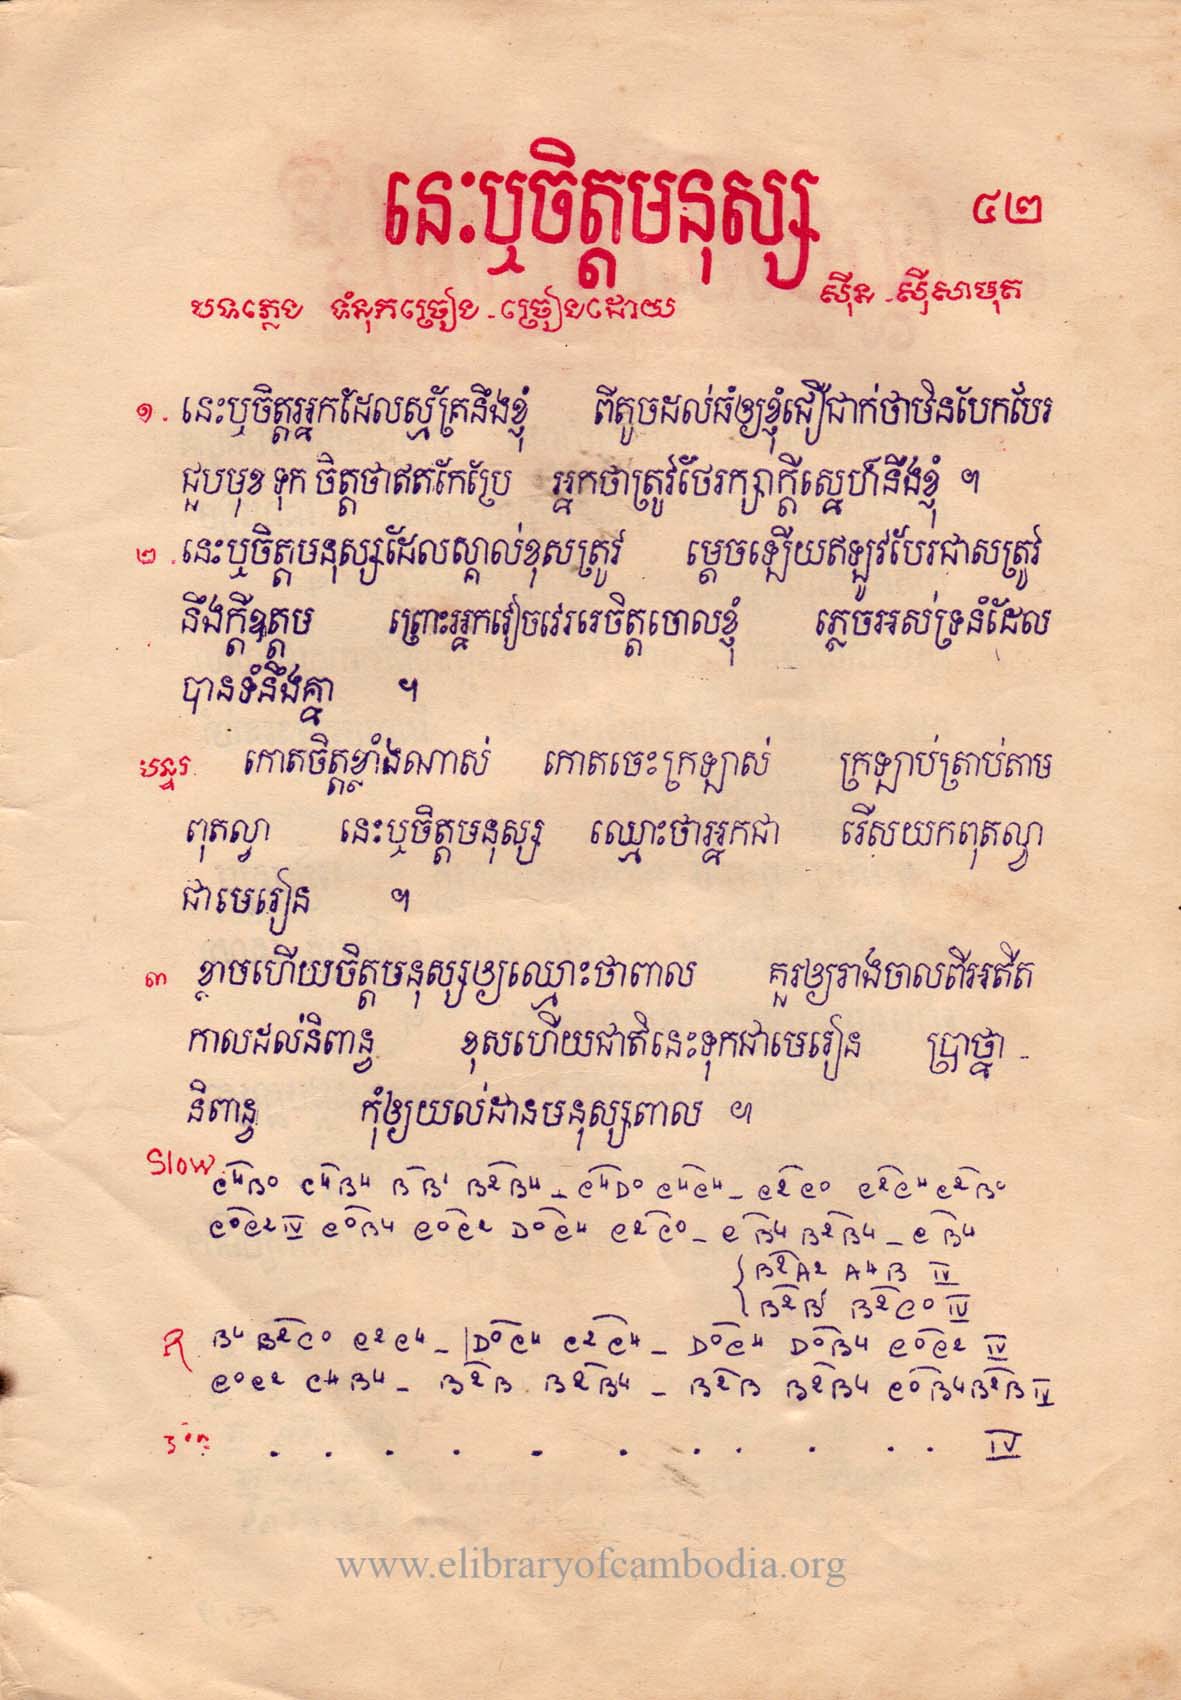 នេះឬចិត្តមនុស្ស
៤២
បទភ្លេង ទំនុកច្រៀង - ច្រៀងដោយ ស៊ីន - ស៊ីសាមុត
១. នេះឬចិត្តអ្នកដែលស្ម័គ្រនឹងខ្ញុំ ពីតូចដល់ធំឲ្យខ្ញុំជឿជាក់ថាមិនបែកបែរ
ជួបមុខ ទុក ចិត្តថាឥតកែប្រែ អ្នកថាត្រូវថែរក្សាក្ដីស្នេហ៍នឹងខ្ញុំ ។
២. នេះឬចិត្តមនុស្សដែលស្គាល់ខុសត្រូវ ម្ដេចឡើយឥឡូវបែរជាសត្រូវ
នឹងក្ដីឧត្តម ព្រោះអ្នកវៀចវេររេចិត្តចោលខ្ញុំ ភ្លេចអស់ទ្រនំដែល
បានទំនឹងគ្នា ។
បន្ទរ កោតចិត្តខ្លាំងណាស់ កោតចេះក្រឡាស់ ក្រឡាប់ត្រាប់តាម
ពុតល្វា នេះឬចិត្តមនុស្ស ឈ្មោះថាអ្នកជា រើសយកពុតល្វា
ជាមេរៀន ។
៣ ខ្លាចហើយចិត្តមនុស្សឲ្យឈ្មោះថាពាល គួរឲ្យរាងចាលពីអតីត
កាលដល់និពាន្វ ខុសហើយជាតិនេះទុកជាមេរៀន ប្រាថ្នា -
និពាន្វ កុំឲ្យយល់ដានមនុស្សពាល ។
Slow. C4B0 C4B4 B B' B2B4 - C4D0 C4C4 - C2C0 C2C4 C2B0
C0C2 IV C0B4 C0C2 D0C4 C2C0 - C B4 B2B4 - C B4
B2A2 A4 B IV
B2B' B2C0 IV
R. B4 B2C0 C2C4 - |D0C4 C2C4 - D0C4 D0B4 C0C2 IV
C0C2 C4B4 - B2B B2B4 - B2B B2B4 C0B4B2B IV
. . . . . . . . . . . IV
www.elibraryofcambodia.org